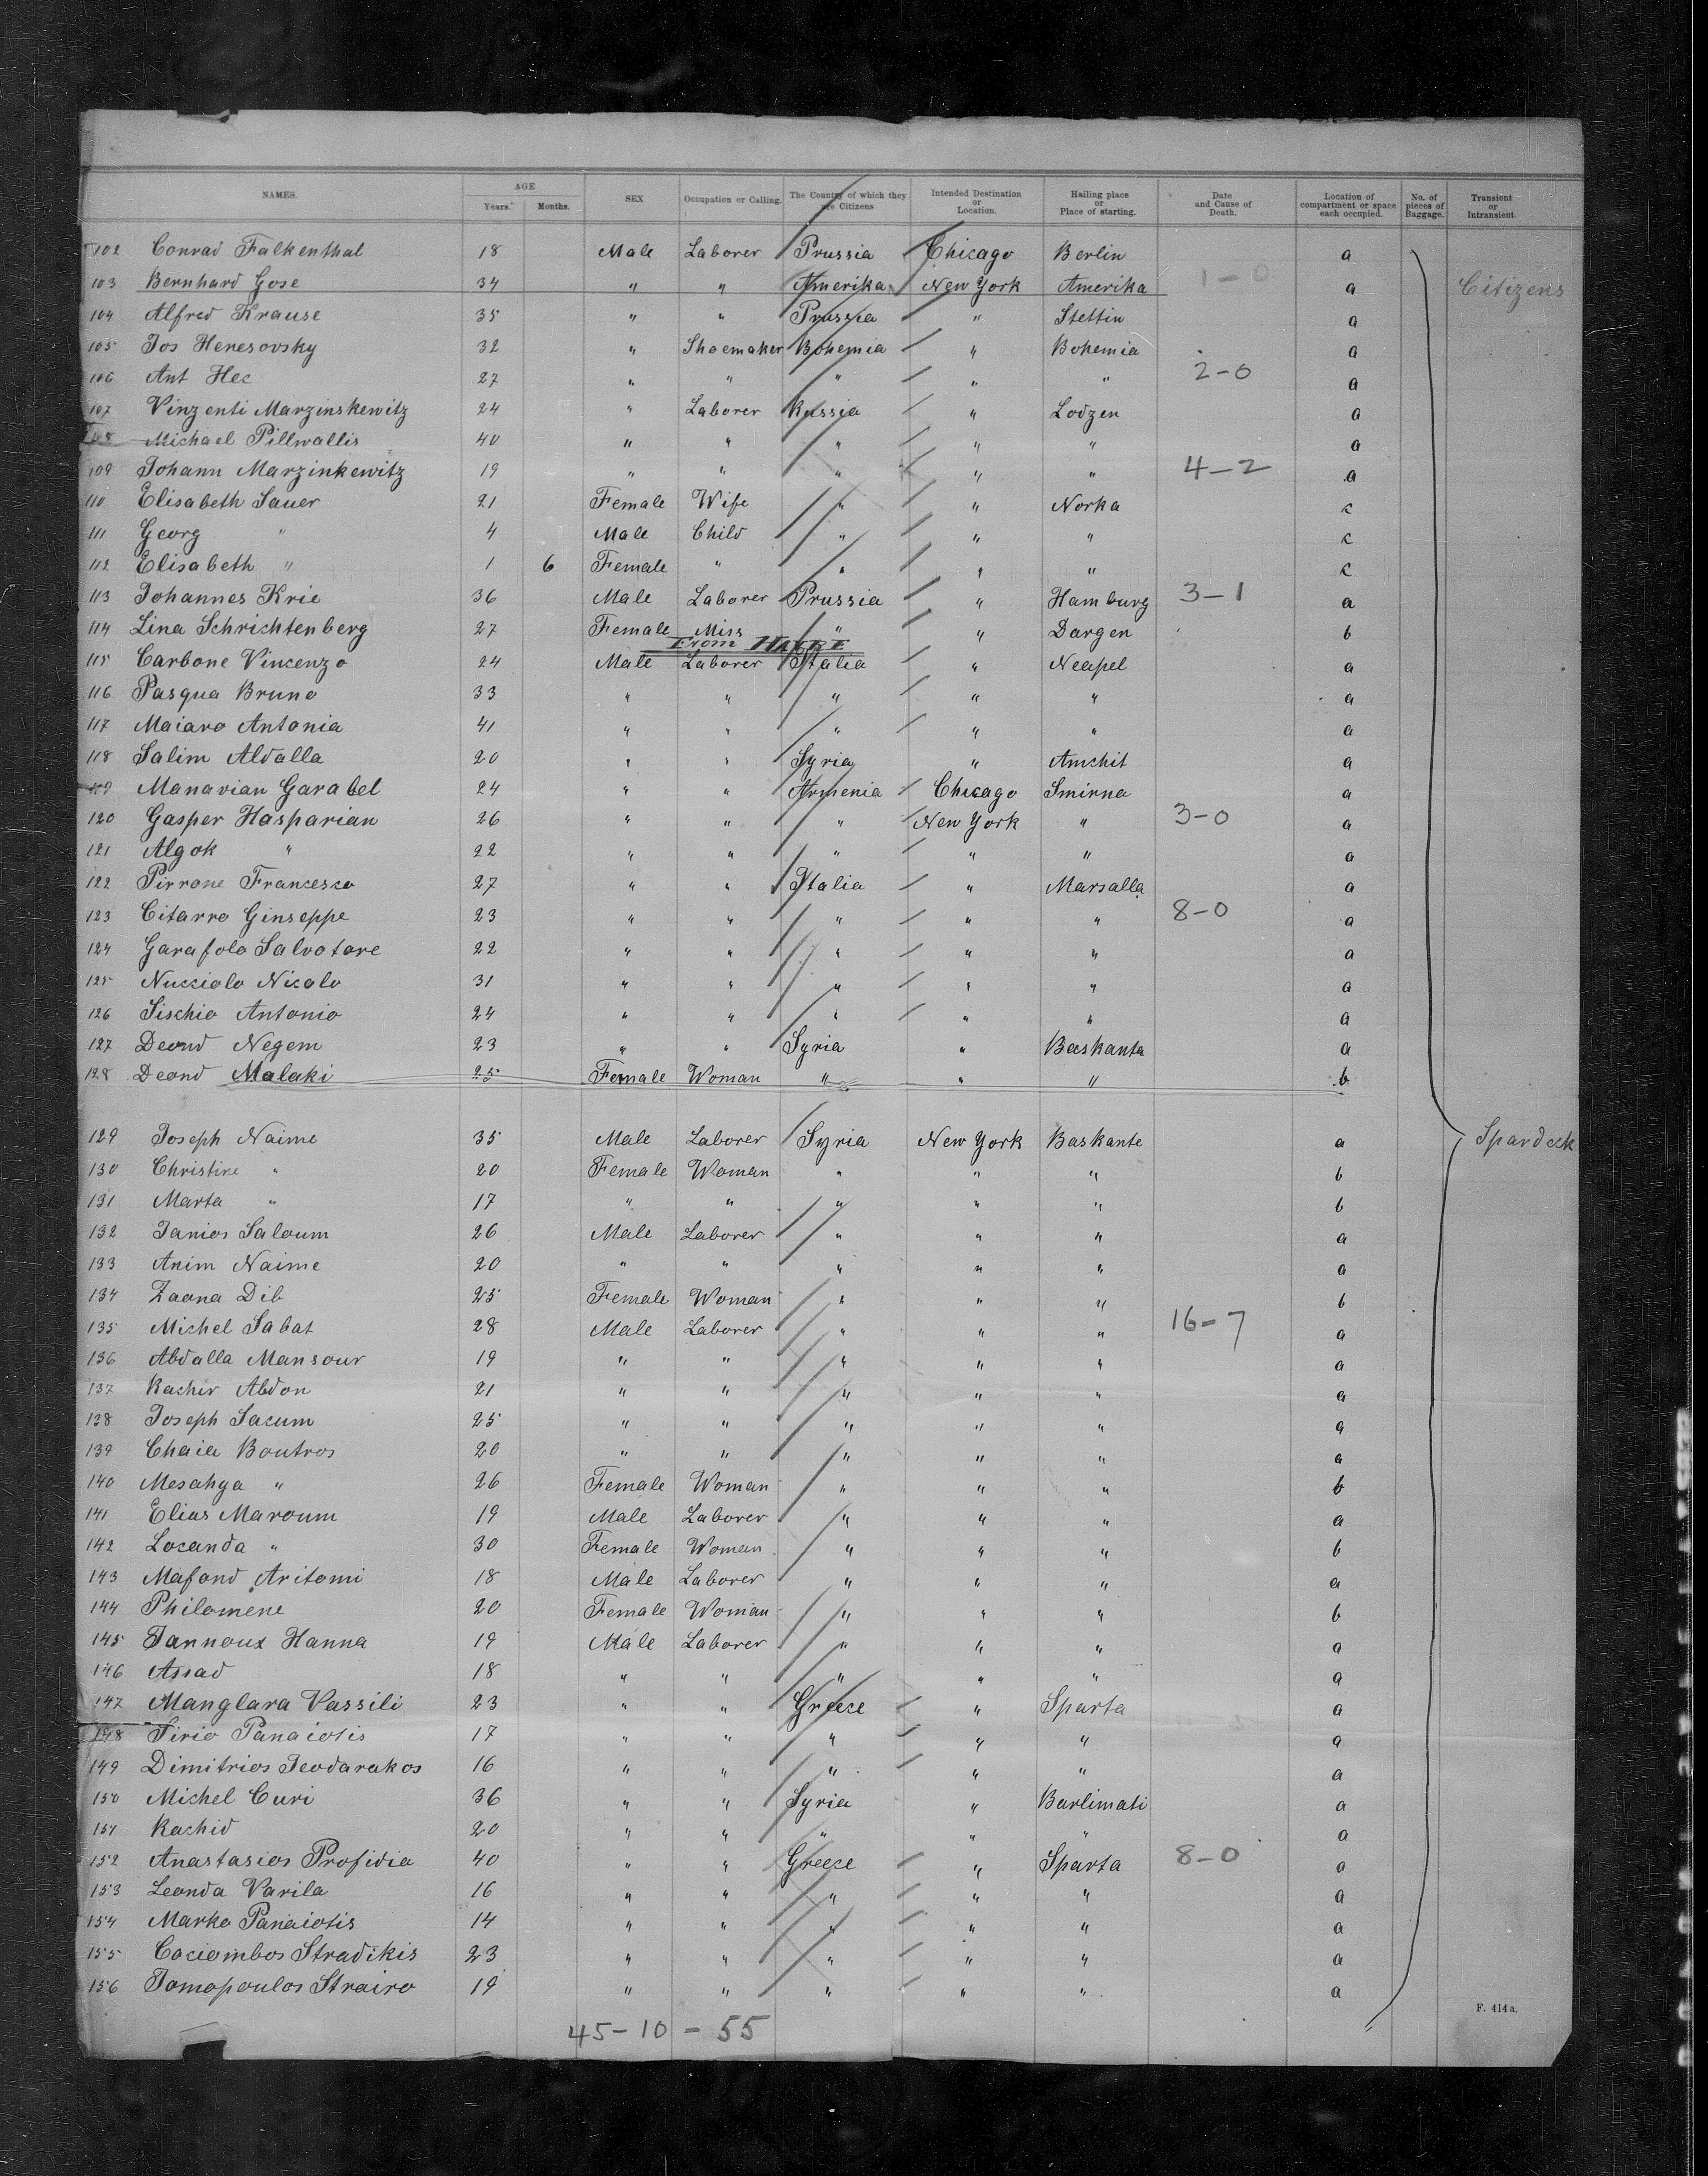 NAMES. AGE SEX Occupation or Calling. The Country of which they are Citizens Intended Destination or Location. Hailing place or Place of starting. Date and Cause of Death. Location of compartment or space each occupied. No. of pieces of Baggage. Transient or Intransient.
Years. Months.
102 Conrad Falkenthal 18 Male Laborer Prussia Chicago Berlin a
103 Bernhard Gose 34 " " Amerika New York Amerika 1-0 a Citizens
104 Alfred Krause 35 " " Prussia " Stettin a
105 Jos Heresovsky 32 " Shoemaker Bohemia " Bohemia a
106 Ant Hec 27 " " " " " 2-0 a
107 Vinzenti Marzinskewitz 24 " Laborer Russia " Lodzen a
108 Michael Pillwallis 40 " " " " " a
109 Johann Marzinkewitz 19 " " " " " 4-2 a
110 Elisabeth Sauer 21 Female Wife " " Norka c
111 Georg " 4 Male Child " " " c
112 Elisabeth " 1 6 Female " " " " c
113 Johannes Krie 36 Male Laborer Prussia " Hamburg 3-1 a
114 Lina Schrichtenberg 27 Female Miss " " Dargen b
From
115 Carbone Vincenzo 24 Male Laborer Italia " Neapel a
116 Pasqua Bruno 33 " " " " " a
117 Maiaro Antonia 41 " " " " " a
118 Salim Aldalla 20 " " Syria " Amchit a
119 Manavian Garabel 24 " " Armenia Chicago Smirna a
120 Gasper Hasparian 26 " " " New York " 3-0 a
121 Algok " 22 " " " " " a
122 Pirrone Francesco 27 " " Italia " Marsalla a
123 Citarro Ginseppe 23 " " " " " 8-0 a
124 Garafolo Salvotore 22 " " " " " a
125 Nucciolo Nicolo 31 " " " " " a
126 Sischio Antonio 24 " " " " " a
127 Deond Negem 23 " " Syria " Baskanta a
128 Deond Malaki 25 Female Woman " " " b
129 Joseph Naime 35 Male Laborer Syria New York Baskante a Spardeck
130 Christine " 20 Female Woman " " " b
131 Marta " 17 " " " " " b
132 Tanios Saloum 26 Male Laborer " " " a
133 Anim Naime 20 " " " " " a
134 Zaona Dib 25 Female Woman " " " b
135 Michel Sabat 28 Male Laborer " " " 16-7 a
136 Abdalla Mansour 19 " " " " " a
137 Rachir Abdon 21 " " " " " a
138 Joseph Sacum 25 " " " " " a
139 Chaia Boutros 20 " " " " " a
140 Mesahga " 26 Female Woman " " " b
141 Elias Maroum 19 Male Laborer " " " a
142 Locanda " 30 Female Woman " " " b
143 Mafond Aritomi 18 Male Laborer " " " a
144 Philomene 20 Female Woman " " " b
145 Tannous Hanna 19 Male Laborer " " " a
146 Assad 18 " " " " " a
147 Manglara Vassili 23 " " Greece " Sparta a
148 Sirio Panaiotis 17 " " " " " a
149 Dimitrios Teodarakos 16 " " " " " a
150 Michel Curi 36 " " Syria " Barlimati a
151 Rachid 20 " " " " " a
152 Anastasios Profidia 40 " " Greece " Sparta 8-0 a
153 Leonda Varila 16 " " " " " a
154 Marko Panaiotis 14 " " " " " a
155 Cociombos Stradikis 23 " " " " " a
156 Tomopoulos Strairo 19 " " " " " a
F. 414a.
45-10-55